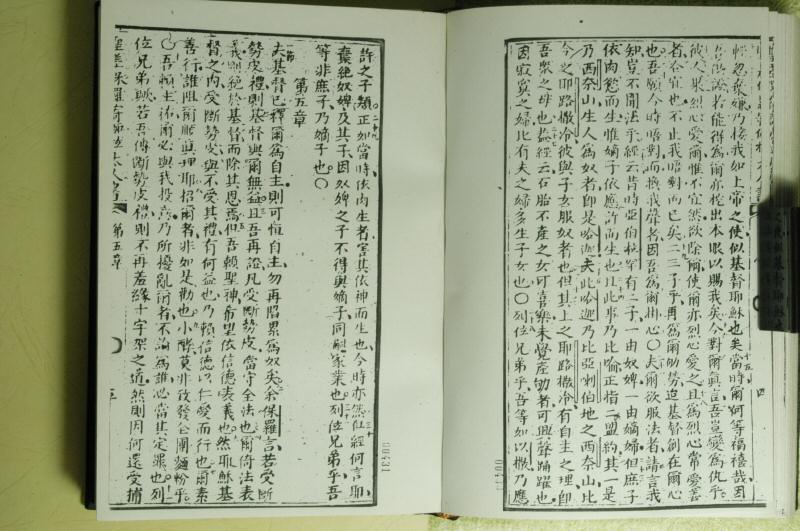 輕忽棄嫌乃接我如上帝之使似基督耶穌也矣當時爾何等福禧哉因
吾證若能得爲爾亦挖出本眼以賜我矣今對爾眞言吾豈變爲仇乎
彼人果烈心愛爾惟不宜然欲除爾使爾亦烈心愛之且爲烈心常愛善
者合宜也不止我晤對而已矣二三子乎再爲爾劬勞迨基督創在爾心
也吾願今時晤對而換我聲者因吾爲爾掛心〇夫爾欲服法者請言我
知豈不聞法乎經云昔時亞伯拉罕有二子一由奴婢一由嫡婦但庶子
依肉慾而生唯嫡子依應許而生也且此事乃比喻正指二盟約其一是
乃西奈山生人爲奴者卽是哈迦夫此哈迦乃比亞喇伯地之西奈山比
今之耶路撒冷彼與子女服奴者也但其上之耶路撒冷有自主之理卽
吾衆之母也蓋經云石胎不產之女可喜樂未覺產劬者可興聲踊躍也
因寂寞之婦比有夫之婦多生子女也〇列位兄弟乎吾等如以撒乃應
許之子類正如當時依肉生者害其依神而生也今時亦然但經何言耶
棄絕奴婢及其子因奴婢之子不得與嫡子同嗣家業也列位兄弟乎吾
等非庶子乃嫡子也〇
第五章
夫基督已釋爾爲自主則可恒自主勿再陷累爲奴矣余保羅言若受斷
勢皮禮則基督與爾無益且吾再證凡受斷勢皮當守全法也爾倚法表
義則絕於基督而除其恩焉但吾賴聖神希望依信德表義也然耶穌基
督之內受斷勢皮與不受其禮有何益也乃賴信德以仁愛而行也爾素
善行誰阻爾順眞理耶招爾者非如是勸也小酵莫非致發仝團麵粉乎
〇吾賴主祐爾必與我投意乃所擾亂爾者不論爲誰必當其定罪也列
位兄弟歟若吾傳斷勢皮禮則不再羞緣十字架之道然則因何還受捕
第五章
四
00431